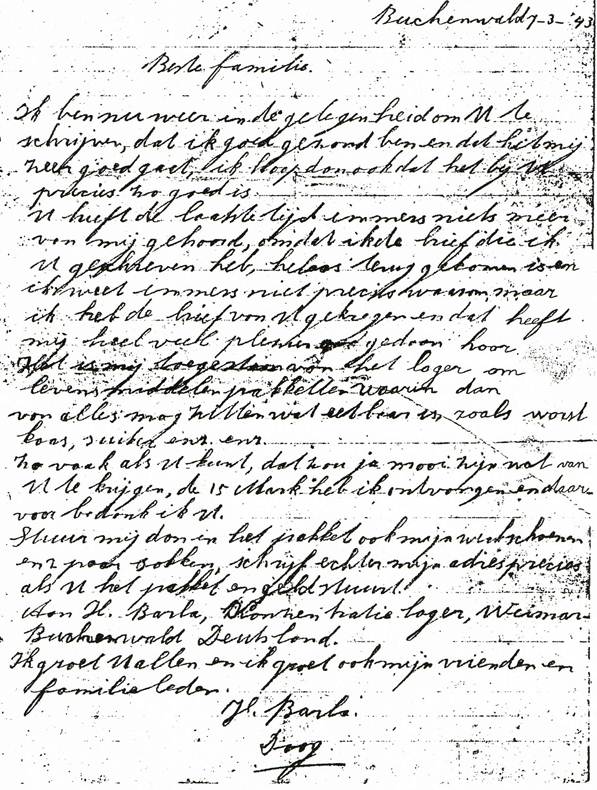 Buchenwald 7-3-'43
Beste familie.
Ik ben nu weer in de gelegenheid om U te
schrijven, dat ik goed gezond ben en dat het mij
zeer goed gaat, ik hoop dan ook dat het bij U
precies zo goed is
U heeft de laatste tijd immers niets meer
van mij gehoord, omdat ik de brief die ik
U geschreven heb, helaas terug gekomen is en
ik weet immers niet precies waarom, maar
ik heb de brief van U gekregen en dat heeft
mij heel veel plezier gedaan hoor.
Het is mij toegestaan van het lager om
levensmiddelen pakketten waarin dan
van alles mag zitten wat eetbaar is, zoals worst
kaas, suiker enz. enz.
zo vaak als U kunt, dat zou ja mooi zijn wat van
U te krijgen, de 15 Mark heb ik ontvangen en daar-
voor bedank ik U.
Stuur mij dan in het pakket ook mijn werkschoenen
en 2 paar sokken, schrijf echter mijn adres precies
als U het pakket en geld stuurt.
Aan H. Barla, Konzentratie lager, Weimar-
Buchenwald Deutsland.
Ik groet U allen en ik groet ook mijn vrienden en
familieleden.
H. Barla.